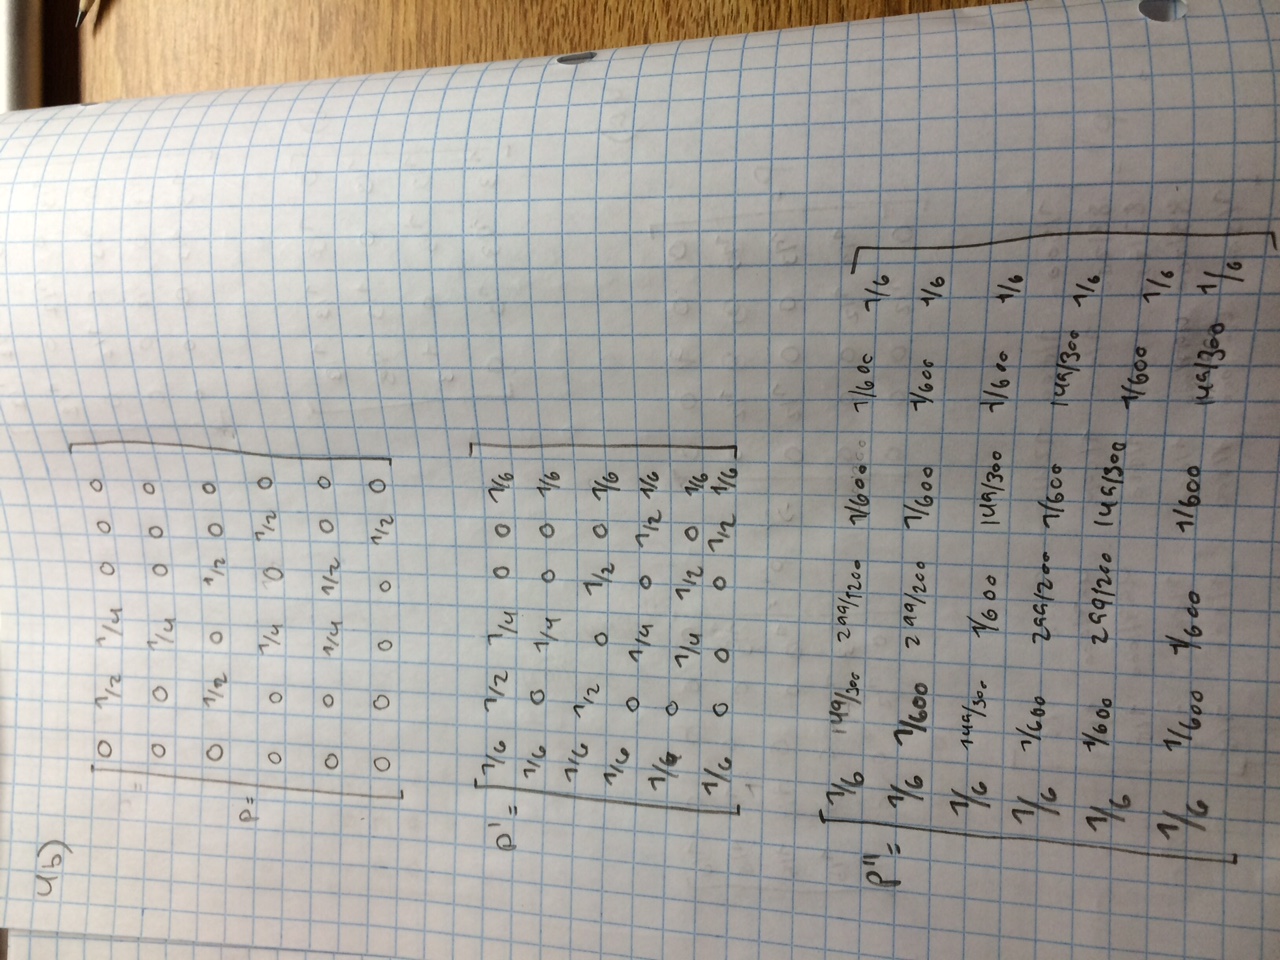 4b)
0 1/2 1/4 0 0 0
0 0 1/4 0 0 0
0 1/2 0 1/2 0 0
P=
0 0 1/4 0 1/2 0
0 0 1/4 1/2 0 0
0 0 0 0 1/2 0
P' = 1/6 1/2 1/4 0 0 1/6
1/6 0 1/4 0 0 1/6
1/6 1/2 0 1/2 0 1/6
1/6 0 1/4 0 1/2 1/6
1/6 0 1/4 1/2 0 1/6
1/6 0 0 0 1/2 1/6
P'' = 1/6 149/300 299/1200 1/600 1/600 1/6
1/6 1/600 299/200 1/600 1/600 1/6
1/6 149/300 1/600 149/300 1/600 1/6
1/6 1/600 299/200 1/600 149/300 1/6
1/6 1/600 299/200 149/300 1/600 1/6
1/6 1/600 1/600 1/600 149/300 1/6